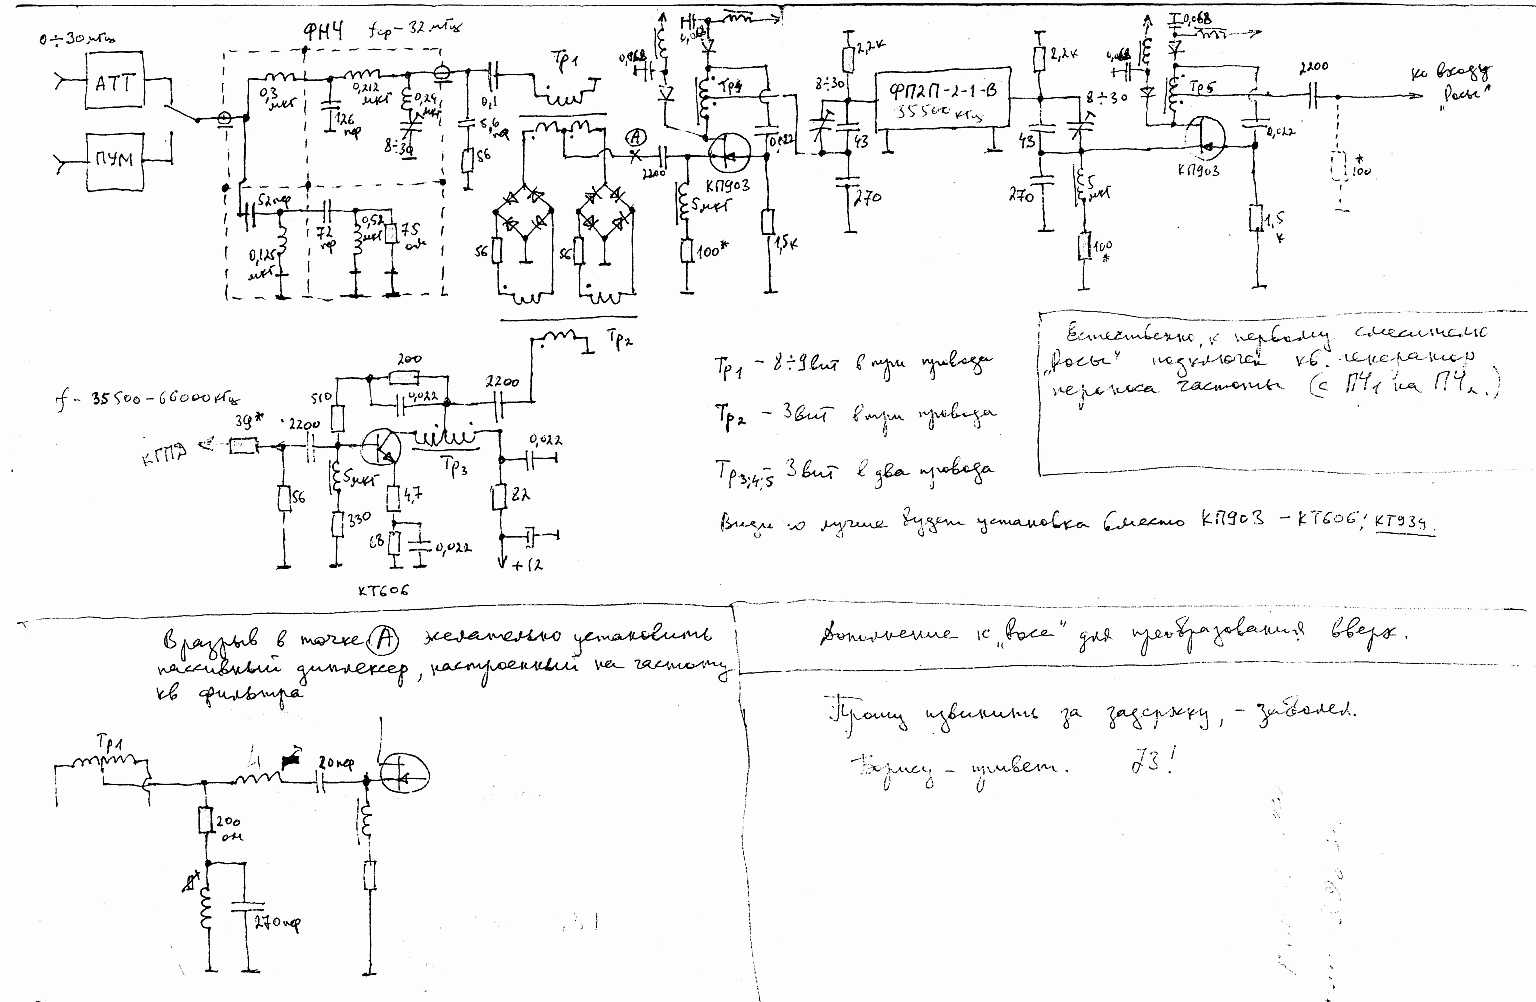 0÷30 мгц
ФНЧ fср-32 мгц
АТТ
ПУМ
0,3 мкг
126 пф
0,212 мкг
0,24 мкг
8÷30
0,1
5,6 пф
56
52 пф
0,125 мкг
72 пф
0,52 мкг
75 ом
Тр1
56
56
Тр2
А
2200
5 мкг
100*
0,068
0,068
Тр4
КП903
0,022
1,5к
2,2к
8÷30
43
270
ФП2П-2-1-В
35500 кгц
2,2к
8÷30
43
270
5 мкг
100*
0,068
0,068
Тр5
КП903
0,022
1,5 к
2200
100*
ко входу
"Росы"
f - 35500-66000 кгц
КГПД
39*
2200
56
510
200
0,022
2200
5 мкг
330
Тр3
4,7
68
0,022
0,022
82
+12
КТ606
Тр1 - 8÷9 вит в три провода
Тр2 - 3 вит в три провода
Тр3;4;5 3 вит в два провода
лучше будет установка вместо КП903 - КТ606; КТ939.
Естественно, к первому смесителю
"Росы" подключен кв. генератор
переноса частоты (с ПЧ1 на ПЧ2.)
В разрыв в точке А желательно установить
пассивный диплексер, настроенный на частоту
кв фильтра
Тр1
20 пф
200 ом
270 пф
Дополнение к "Росе" для преобразования вверх.
Прошу извинить за задержку, - заболел.
Борису - привет. 73!